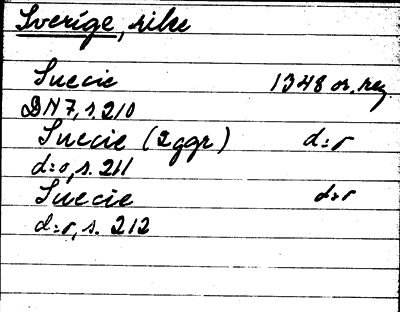 Sverige, rike
Suecie 1348 or. reg.
DN 7, s. 210
Suecie (2 ggr) d:o
d:o, s. 211
Suecie d:o
d:o, s. 212